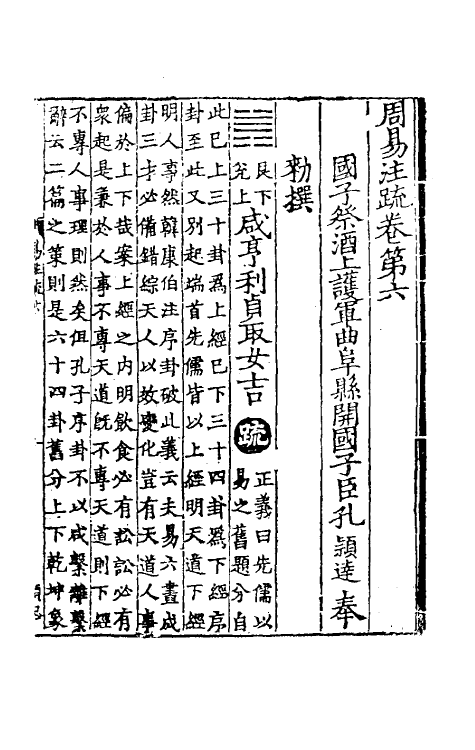 周易注疏卷第六
國子祭酒上護軍曲阜縣開國子臣孔穎達奉
勑撰
艮下
兌上
咸亨利貞取女吉
疏
正義曰先儒以
易之舊題分自
此已上三十卦爲上經已下三十四卦爲下經序
卦至此又別起端首先儒皆以上經明天道下經
明人事然韓康伯注序卦破此義云夫易六畫成
卦三才必備錯綜天人以效變化豈有天道人事
偏於上下哉案上經之内明飲食必有訟訟必有
衆起是兼於人事不專天道旣不專天道則下經
不專人事理則然矣但孔子序卦不以咸繫離繫
辭云二篇之策則是六十四卦舊分上下乾坤象